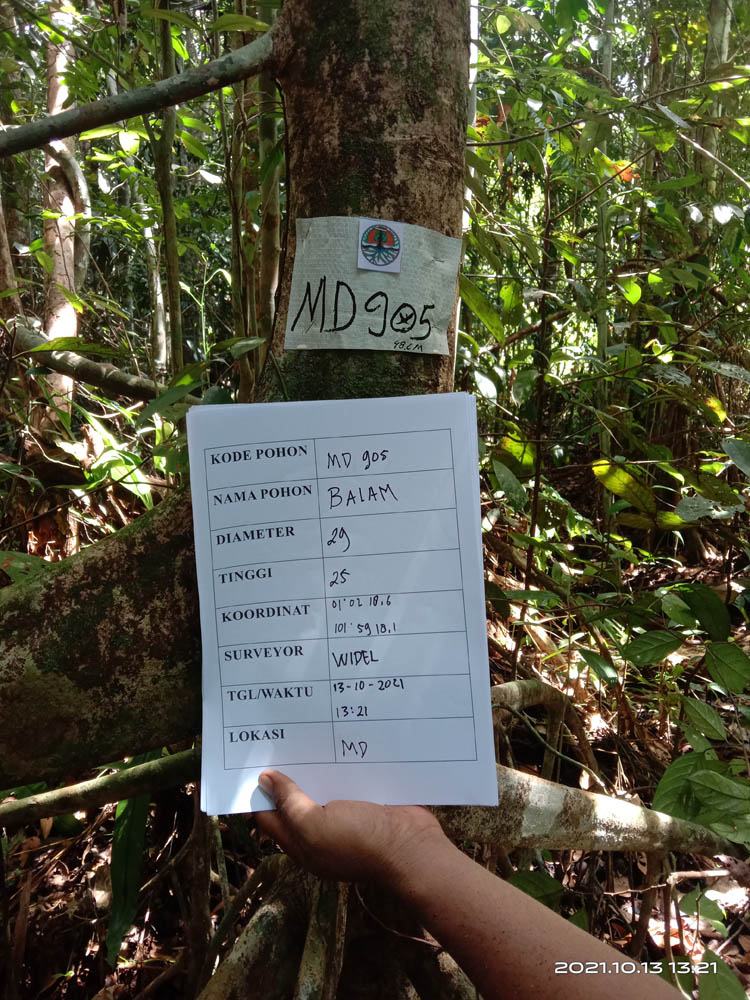 MD 905
98.cM
KODE POHON MD 905
NAMA POHON BALAM
DIAMETER 29
TINGGI 25
KOORDINAT 01°02 18,6
101°59 18,1
SURVEYOR WIDEL
TGL/WAKTU 13-10-2021
13:21
LOKASI MD
2021.10.13 13:21